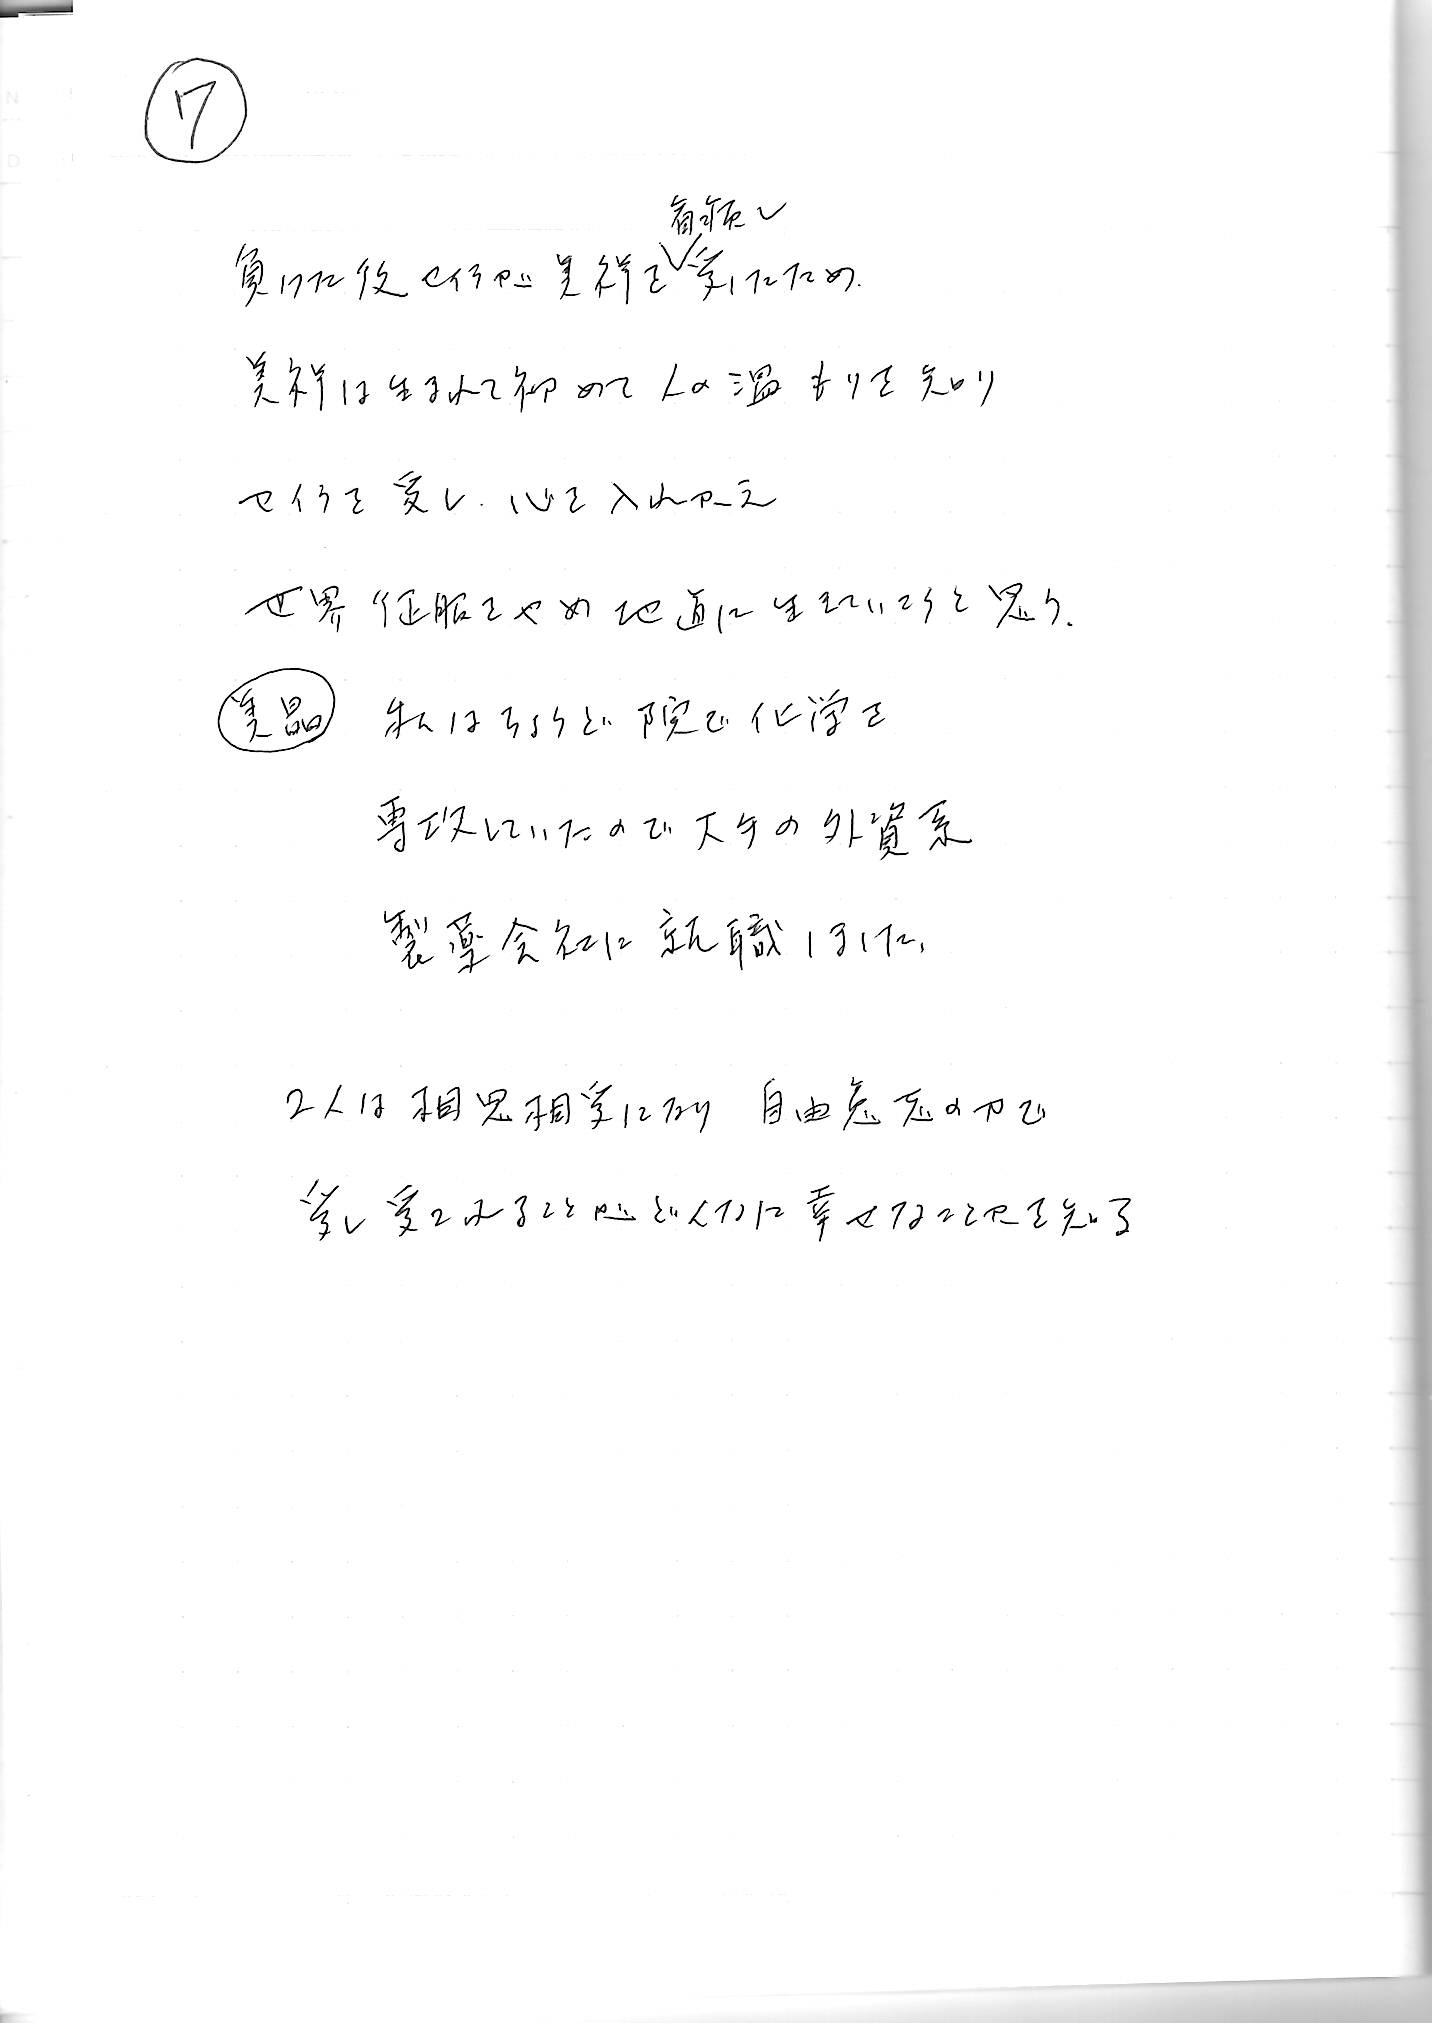 ⑦
看病し
負けた後セイラが美祥を愛したため、
美祥は生まれて初めて人の温もりを知り
セイラを愛し、心を入れかえ
世界征服をやめ地道に生きていこうと思う。
美晶 私はちょうど院で化学を
専攻していたので大手の外資系
製薬会社に就職しました。
2人は相思相愛になり 自由意志の力で
愛し愛されることがどんなに幸せなことかを知る